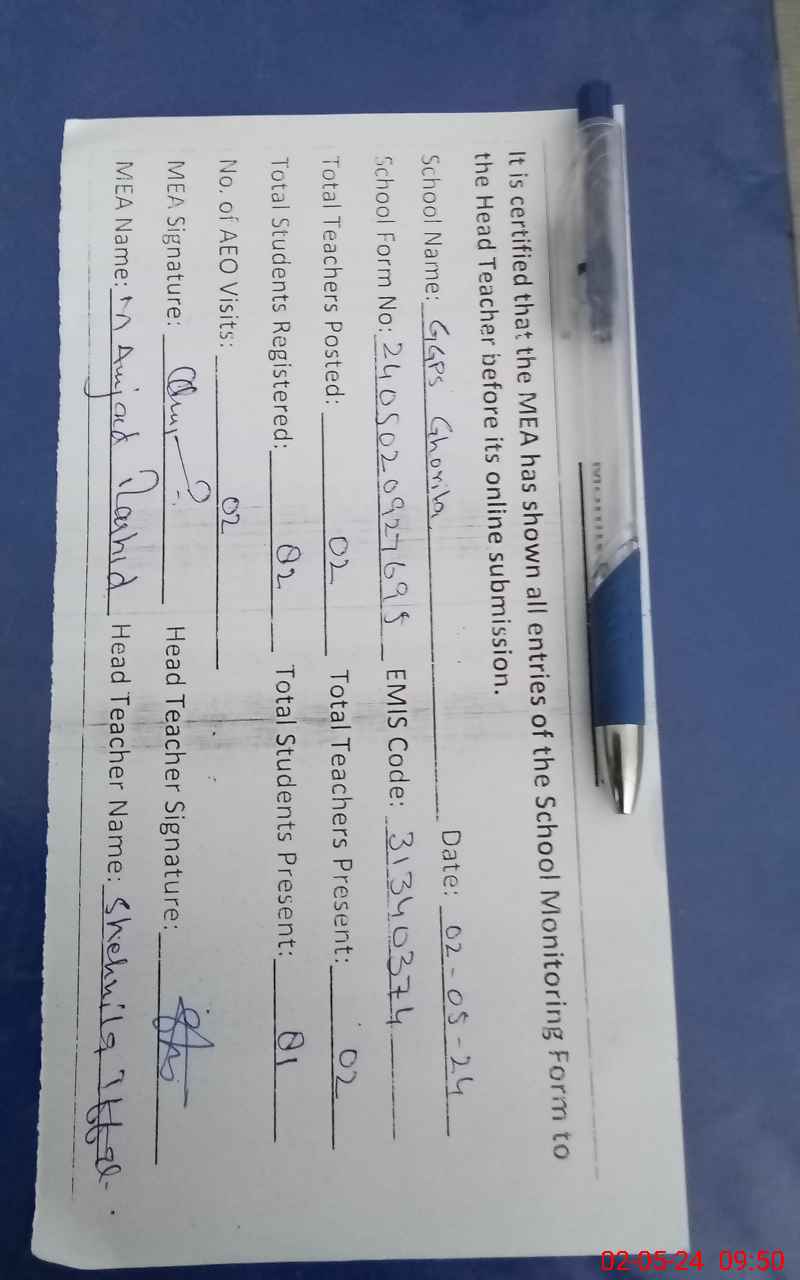 It is certified that the MEA has shown all entries of the School Monitoring Form to
the Head Teacher before its online submission.
School Name: GGPS Ghorila Date: 02-05-24
School Form No: 2405020927695 EMIS Code: 31340374
Total Teachers Posted: 02 Total Teachers Present: 02
Total Students Registered: 02 Total Students Present: 01
No. of AEO Visits: 02
MEA Signature: Head Teacher Signature:
MEA Name: M Amjad Rashid Head Teacher Name: Shehnila
02-05-24 09:50